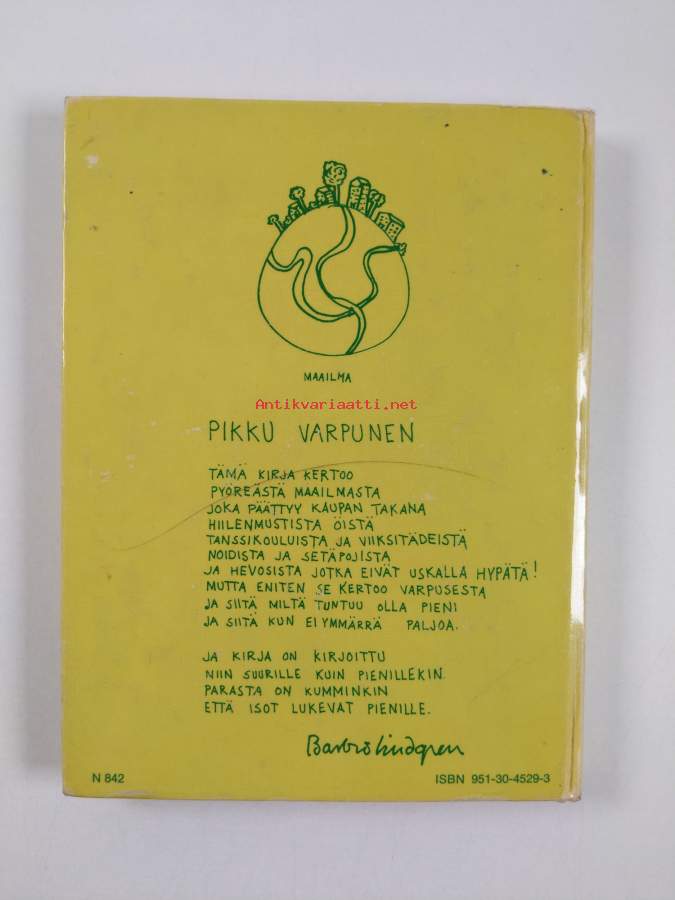 MAAILMA
Antikvariaatti.net
PIKKU VARPUNEN
TÄMÄ KIRJA KERTOO
PYÖREÄSTÄ MAAILMASTA
JOKA PÄÄTTYY KAUPAN TAKANA
HIILENMUSTISTA ÖISTÄ
TANSSIKOULUISTA JA VIIKSITÄDEISTÄ
NOIDISTA JA SETÄPOJISTA
JA HEVOSISTA JOTKA EIVÄT USKALLA HYPÄTÄ!
MUTTA ENITEN SE KERTOO VARPUSESTA
JA SIITÄ MILTÄ TUNTUU OLLA PIENI
JA SIITÄ KUN EI YMMÄRRÄ PALJOA.
JA KIRJA ON KIRJOITTU
NIIN SUURILLE KUIN PIENILLEKIN.
PARASTA ON KUMMINKIN
ETTÄ ISOT LUKEVAT PIENILLE.
Barbro Lindgren
N 842
ISBN 951-30-4529-3